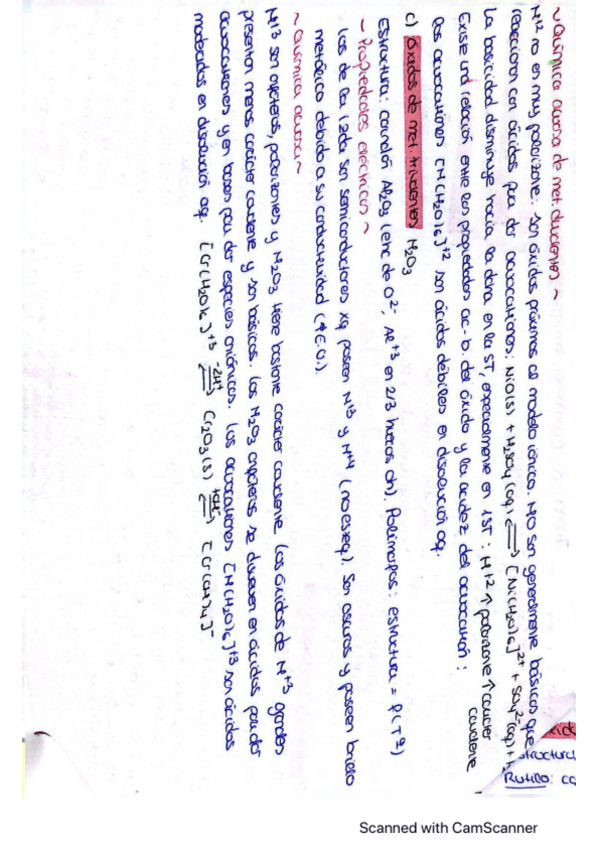 ~ Química acuosa de met. divalentes ~
M+2 no es muy polarizante: son óxidos próximos al modelo iónico. MO son generalmente básicos que
reaccionan con ácidos para dar acuocationes: NiO(s) + H2SO4(aq) ⇌ [Ni(H2O)6]2+ + SO4 2-(aq) + H2
La basicidad disminuye hacia la dcha en la ST, especialmente en 1ST: M+2 ↑ polarizante ↑ carácter
covalente
Existe una relación entre las propiedades ac-b. del óxido y la acidez del acuocatión:
los acuocationes [M(H2O)6]+2 son ácidos débiles en disolución aq.
c) Óxidos de met. trivalentes M2O3
Estructura: corindón Al2O3 (ehc de O2-; Al+3 en 2/3 huecos oh). Polimorfos: estructura = f(Tª)
~ Propiedades eléctricas ~
Los de la izda son semiconductores xq poseen M+3 y M+4 (no esteq). Son oscuros y poseen brillo
metálico debido a su conductividad (≠E.O.).
~ Química acuosa ~
M+3 son ajeteros, polarizantes y M2O3 tiene bastante carácter covalente. Los óxidos de M+3 grandes
presentan menos carácter covalente y son básicos. Los M2O3 anfóteros se disuelven en ácidos para dar
acuocationes y en bases para dar especies aniónicas. Los acuocationes [M(H2O)6]+3 son ácidos
moderados en disolución aq. [Cr(H2O)6]+3 -2H+ ⇌ Cr2O3(s) +OH- ⇌ [Cr(OH)4]-
structura
Rutilo: co
Scanned with CamScanner